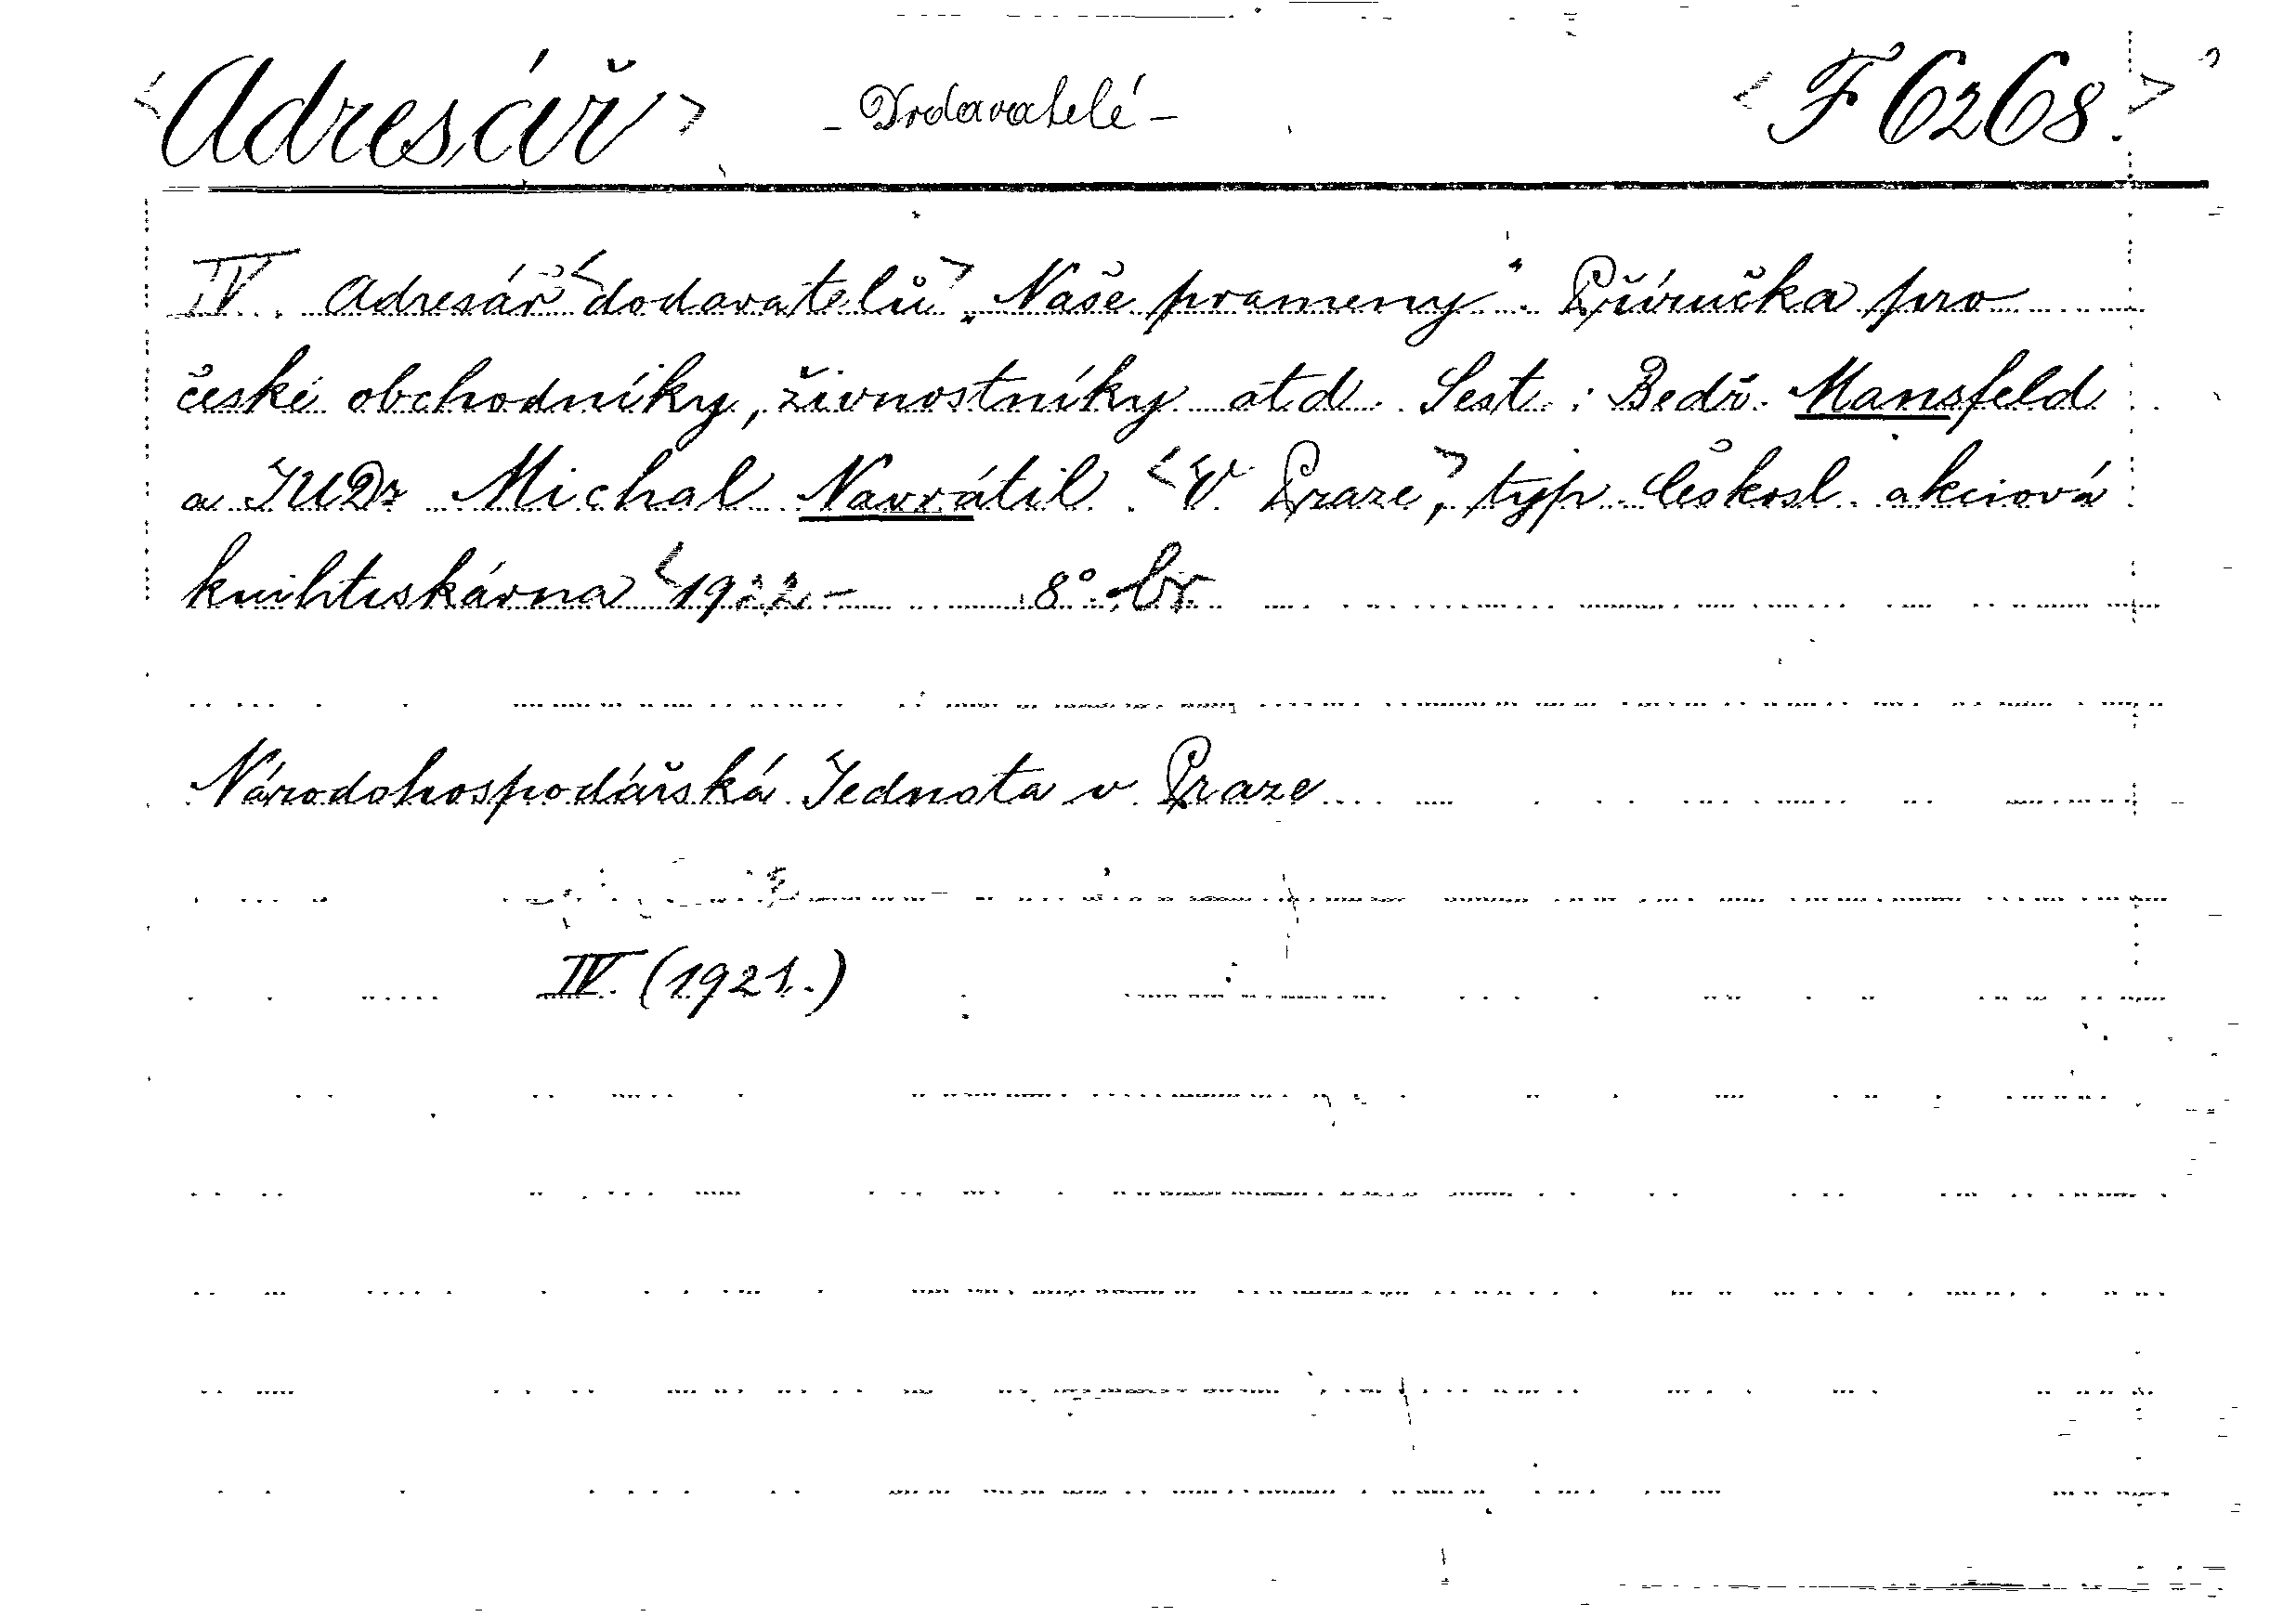 <Adresář> - Dodavatelé - <F 6268.>
IV. Adresář <dodavatelů> „Naše prameny“. Příručka pro
české obchodníky, živnostníky atd. Sest.: Bedř. Mansfeld
a JUDr Michal Navrátil. <V Praze>, typ. Českosl. akciová
knihtiskárna <1922.- 8° br
Národohospodářská Jednota v Praze
IV. (1921.)